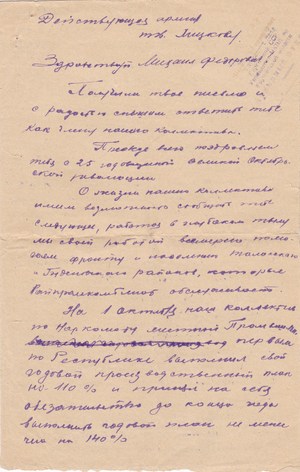 Действующая армия
тов. Яицкову
Здравствуй Михаил Федорович.
Получили твое письмо и
с радостью спешим ответить тебе
как члену нашего коллектива.
Прежде всего поздравляем
тебя с 25 годовщиной великой октябрь
ской революции
О жизни нашего коллектива
имеем возможность сообщить тебе
следующее, работая в глубоком тылу
мы своей работой всемерно помо
гаем фронту и населению
районов, которые
На 1 октября наш коллектив
по Наркомату местной Промышлен
первый
по Республике выполнил свой
годовой производственный план
на 110% и принял на себя
обязательство до конца года
выполнить годовой план не менее
чем на 140%